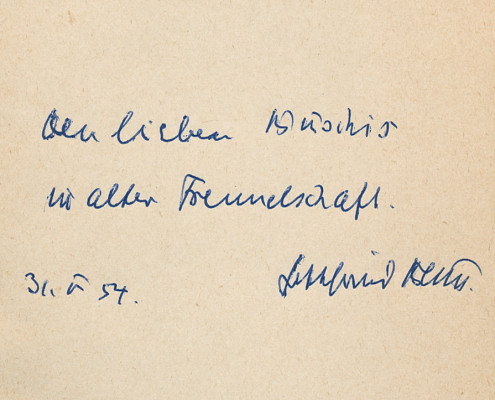 Den lieben Büschis
in alter Freundschaft.
31. V 54.
Gottfried Benn.